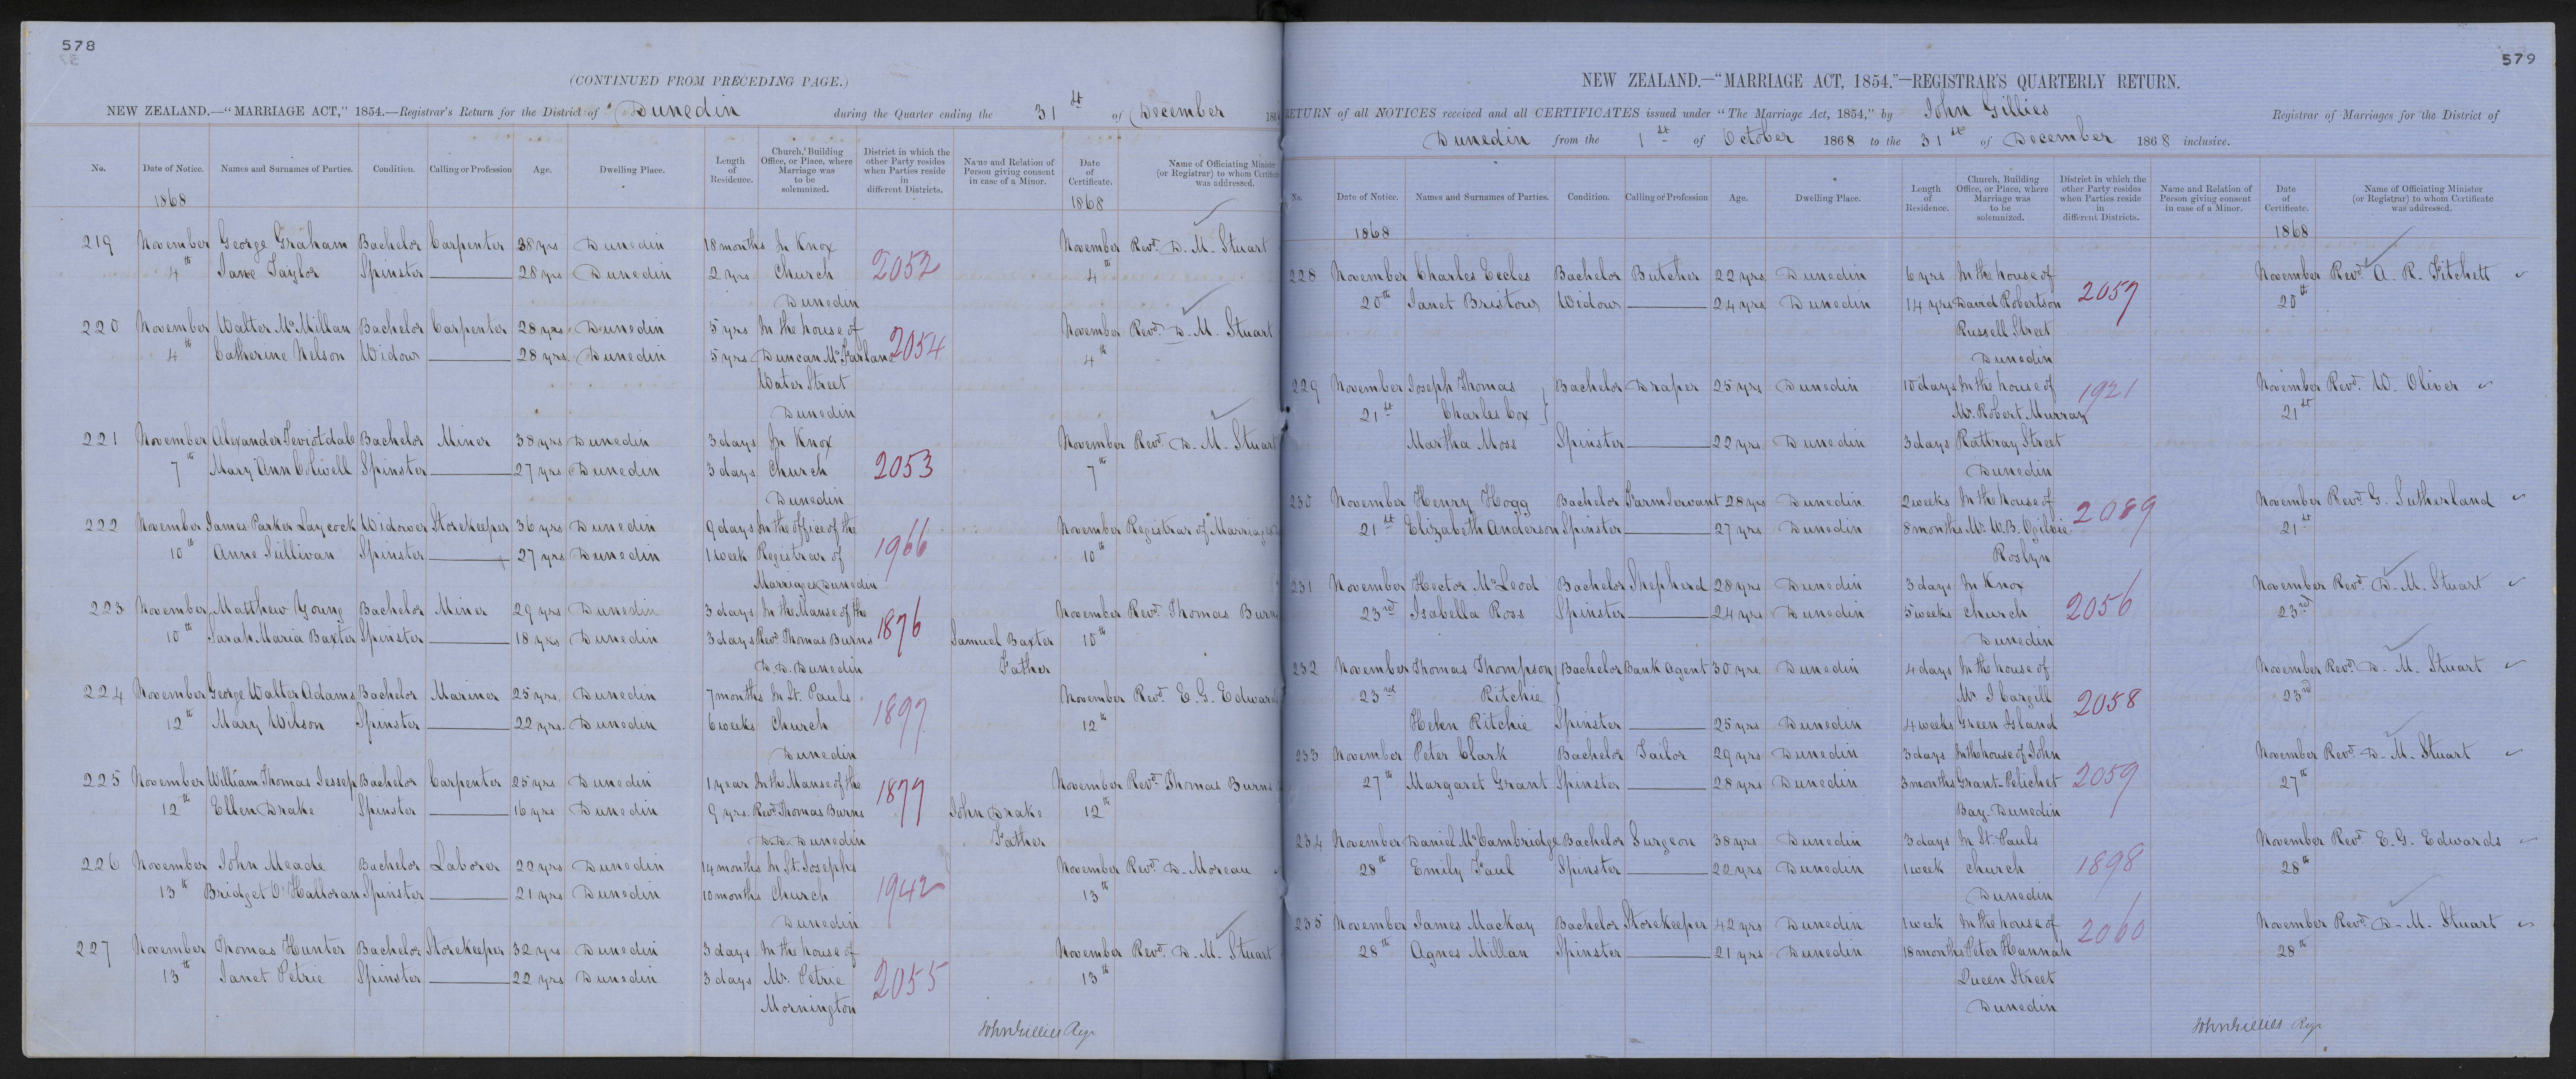 578
(CONTINUED FROM PRECEDING PAGE.)
NEW ZEALAND.—"MARRIAGE ACT," 1854.—Registrar's Return for the District of Dunedin during the Quarter ending the 31st of December 186
No. Date of Notice. Names and Surnames of Parties. Condition. Calling or Profession Age. Dwelling Place. Length of Residence. Church, Building Office, or Place, where Marriage was to be solemnized. District in which the other Party resides when Parties reside in different Districts. Name and Relation of Person giving consent in case of a Minor. Date of Certificate. Name of Officiating Minister (or Registrar) to whom Certificate was addressed.
1868 1868
219 November George Graham Bachelor Carpenter 38 yrs Dunedin 18 months In Knox November Revd. D. M. Stuart
4th Jane Taylor Spinster 28 yrs Dunedin 2 yrs Church 2052 4th
Dunedin
220 November Walter McMillan Bachelor Carpenter 28 yrs Dunedin 5 yrs In the house of November Revd. D. M. Stuart
4th Catherine Nelson Widow 28 yrs Dunedin 5 yrs Duncan McFarlane 2054 4th
Water Street
Dunedin
221 November Alexander Teviotdale Bachelor Miner 38 yrs Dunedin 3 days In Knox November Revd. D. M. Stuart
7th Mary Ann Colwell Spinster 27 yrs Dunedin 3 days Church 2053 7th
Dunedin
222 November James Parker Laycock Widower Storekeeper 36 yrs Dunedin 9 days In the office of the November Registrar of Marriages
10th Anne Sullivan Spinster 27 yrs Dunedin 1 week Registrar of 1966 10th
Marriages Dunedin
223 November Matthew Young Bachelor Miner 29 yrs Dunedin 3 days In the Manse of the November Revd. Thomas Burns
10th Sarah Maria Baxter Spinster 18 yrs Dunedin 3 days Revd. Thomas Burns 1876 Samuel Baxter 10th
D.D. Dunedin Father
224 November George Walter Adams Bachelor Mariner 25 yrs. Dunedin 7 months In St. Pauls November Revd. E. G. Edwards
12th Mary Wilson Spinster 22 yrs. Dunedin 6 weeks Church 1897 12th
Dunedin
225 November William Thomas Jessep Bachelor Carpenter 25 yrs Dunedin 1 year In the Manse of the November Revd. Thomas Burns
12th Ellen Drake Spinster 16 yrs Dunedin 9 yrs. Revd. Thomas Burns 1877 John Drake 12th
D.D. Dunedin Father
226 November John Meade Bachelor Laborer 22 yrs Dunedin 14 months In St. Josephs November Revd. D. Moreau
13th Bridget O'Halloran Spinster 21 yrs Dunedin 10 months Church 1942 13th
Dunedin
227 November Thomas Hunter Bachelor Storekeeper 32 yrs Dunedin 3 days In the house of November Revd. D. M. Stuart
13th Janet Petrie Spinster 22 yrs Dunedin 3 days Mr. Petrie 2055 13th
Mornington
John Gillies Regr
579
NEW ZEALAND.—"MARRIAGE ACT, 1854."—REGISTRAR'S QUARTERLY RETURN.
RETURN of all NOTICES received and all CERTIFICATES issued under "The Marriage Act, 1854," by John Gillies Registrar of Marriages for the District of
Dunedin from the 1st of October 1868 to the 31st of December 1868 inclusive.
No. Date of Notice. Names and Surnames of Parties. Condition. Calling or Profession Age. Dwelling Place. Length of Residence. Church, Building Office, or Place, where Marriage was to be solemnized. District in which the other Party resides when Parties reside in different Districts. Name and Relation of Person giving consent in case of a Minor. Date of Certificate. Name of Officiating Minister (or Registrar) to whom Certificate was addressed.
1868 1868
228 November Charles Eccles Bachelor Butcher 22 yrs Dunedin 6 yrs In the house of November Revd. A. R. Fitchett
20th Janet Bristow Widow 24 yrs Dunedin 14 yrs David Robertson 2057 20th
Russell Street
Dunedin
229 November Joseph Thomas Bachelor Draper 25 yrs Dunedin 10 days In the house of 1921 November Revd. W. Oliver
21st Charles Cox Mr. Robert Murray 21st
Martha Moss Spinster 22 yrs Dunedin 3 days Rattray Street
Dunedin
230 November Henry Hogg Bachelor Farm Servant 28 yrs Dunedin 2 weeks In the house of November Revd. G. Sutherland
21st Elizabeth Anderson Spinster 27 yrs Dunedin 8 months Mr. W. B. Ogilvie 2089 21st
Roslyn
231 November Hector McLeod Bachelor Shepherd 28 yrs Dunedin 3 days In Knox November Revd. D. M. Stuart
23rd Isabella Ross Spinster 24 yrs Dunedin 5 weeks Church 2056 23rd
Dunedin
232 November Thomas Thompson Bachelor Bank Agent 30 yrs Dunedin 4 days In the house of November Revd. D. M. Stuart
23rd Ritchie Mr J Cargill 2058 23rd
Helen Ritchie Spinster 25 yrs Dunedin 4 weeks Green Island
233 November Peter Clark Bachelor Tailor 29 yrs Dunedin 3 days In the house of John November Revd. D. M. Stuart
27th Margaret Grant Spinster 28 yrs Dunedin 3 months Grant-Pelichet 2059 27th
Bay Dunedin
234 November Daniel McCambridge Bachelor Surgeon 38 yrs Dunedin 3 days In St. Pauls November Revd. E. G. Edwards
28th Emily Faul Spinster 22 yrs Dunedin 1 week Church 1898 28th
Dunedin
235 November James Mackay Bachelor Storekeeper 42 yrs Dunedin 1 week In the house of November Revd. D. M. Stuart
28th Agnes Millan Spinster 21 yrs Dunedin 18 months Peter Hannah 2060 28th
Queen Street
Dunedin
John Gillies Regr